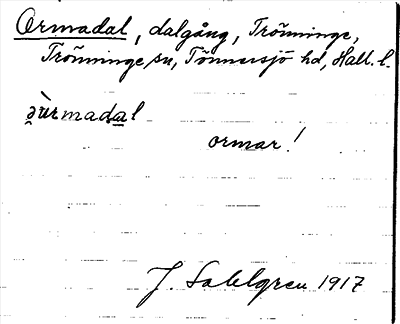 Ormadal, dalgång, Trönninge,
Trönninge sn, Tönnersjö hd, Hall. l.
ə̯ùrmadal
ormar!
J. Sahlgren 1917